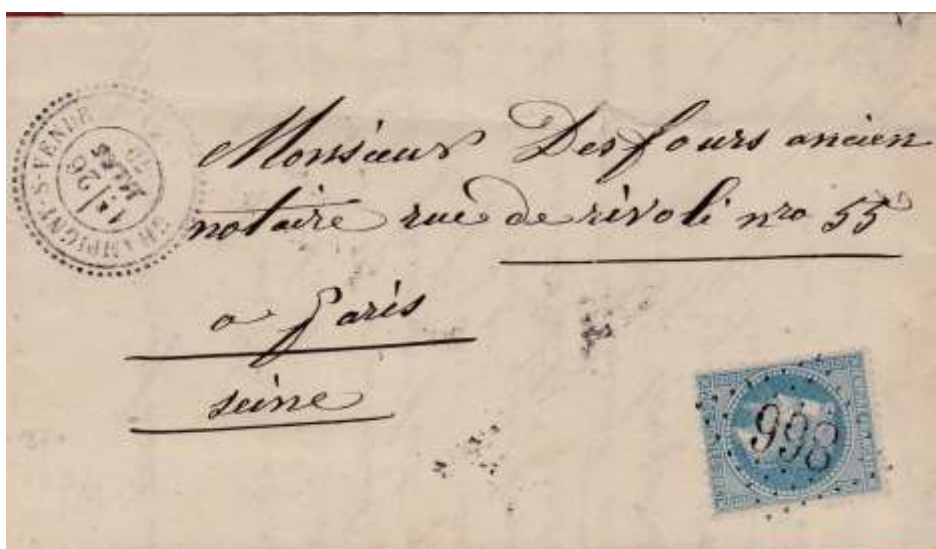 CHAMPIGNY-S-VENDE
1E/
26
MARS
70
Monsieur Desfours ancien
notaire rue de rivoli nro 55
a paris
seine
998